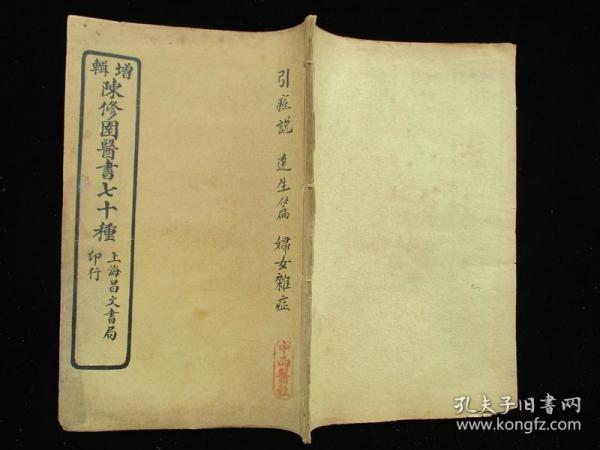 增輯
陳修園醫書七十種
上海昌文書局
印行
引痘説 達生篇 婦女雜症
中西醫
孔夫子旧书网
www.kongfz.com